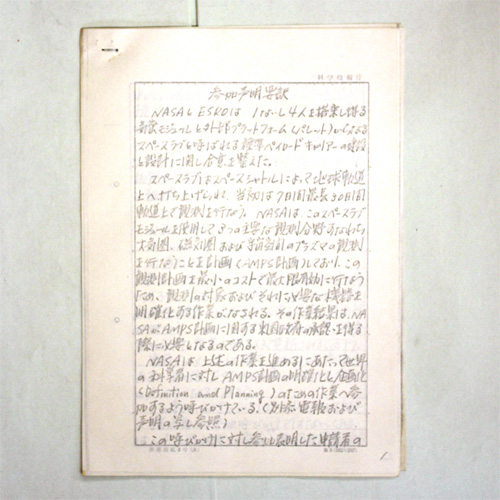 科学技術庁
参加声明要訳
NASAとESROは 1ないし4人を搭乗し得る
与圧モジュールと外部プラットフォーム(パレット)からなる
スペースラブと呼ばれる標準ペイロードキャリアーの建設
と設計に関し合意を整えた。
スペースラブはスペースシャトルによって地球軌道
上へ打ち上げられ、当初は7日間最長30日間
軌道上で観測を行なう。NASAは このスペースラブ
モジュールを使用して3つの主要な観測分野すなわち
大気圏、磁気圏および宇宙空間のプラズマの観測
を行なうことを計画(AMPS計画)しており、この
観測計画を最小のコストで最大限有効に行なう
ため、観測の対象およびそれに必要な機器を
明確化する作業がなされる。その作業結果は、NA
SAがAMPS計画に関する の承認を得る
際に必要となるのである。
NASAは 上述の作業を進めるにあたって世界
の科学者に対し AMPS計画の明確化と企画化
(Definition and Planning)のための作業へ参
加するよう呼びかけている。(外務電報および
声明の写し参照)
この呼びかけに対し参加表明した申請者の
1